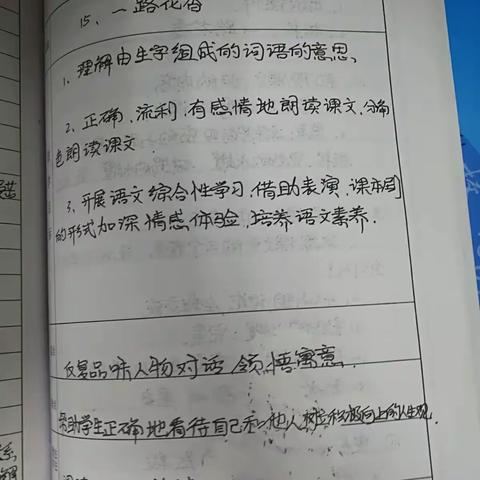 15、一路花香
1、理解由生字组成的词语的意思、
2、正确、流利、有感情地朗读课文,分角
色朗读课文.
3、开展语文综合性学习,借助表演、课本剧
的形式加深情感体验,培养语文素养.
反复品味人物对话,领悟寓意.
帮助学生正确地看待自己和他人,树立积极向上的人生观.